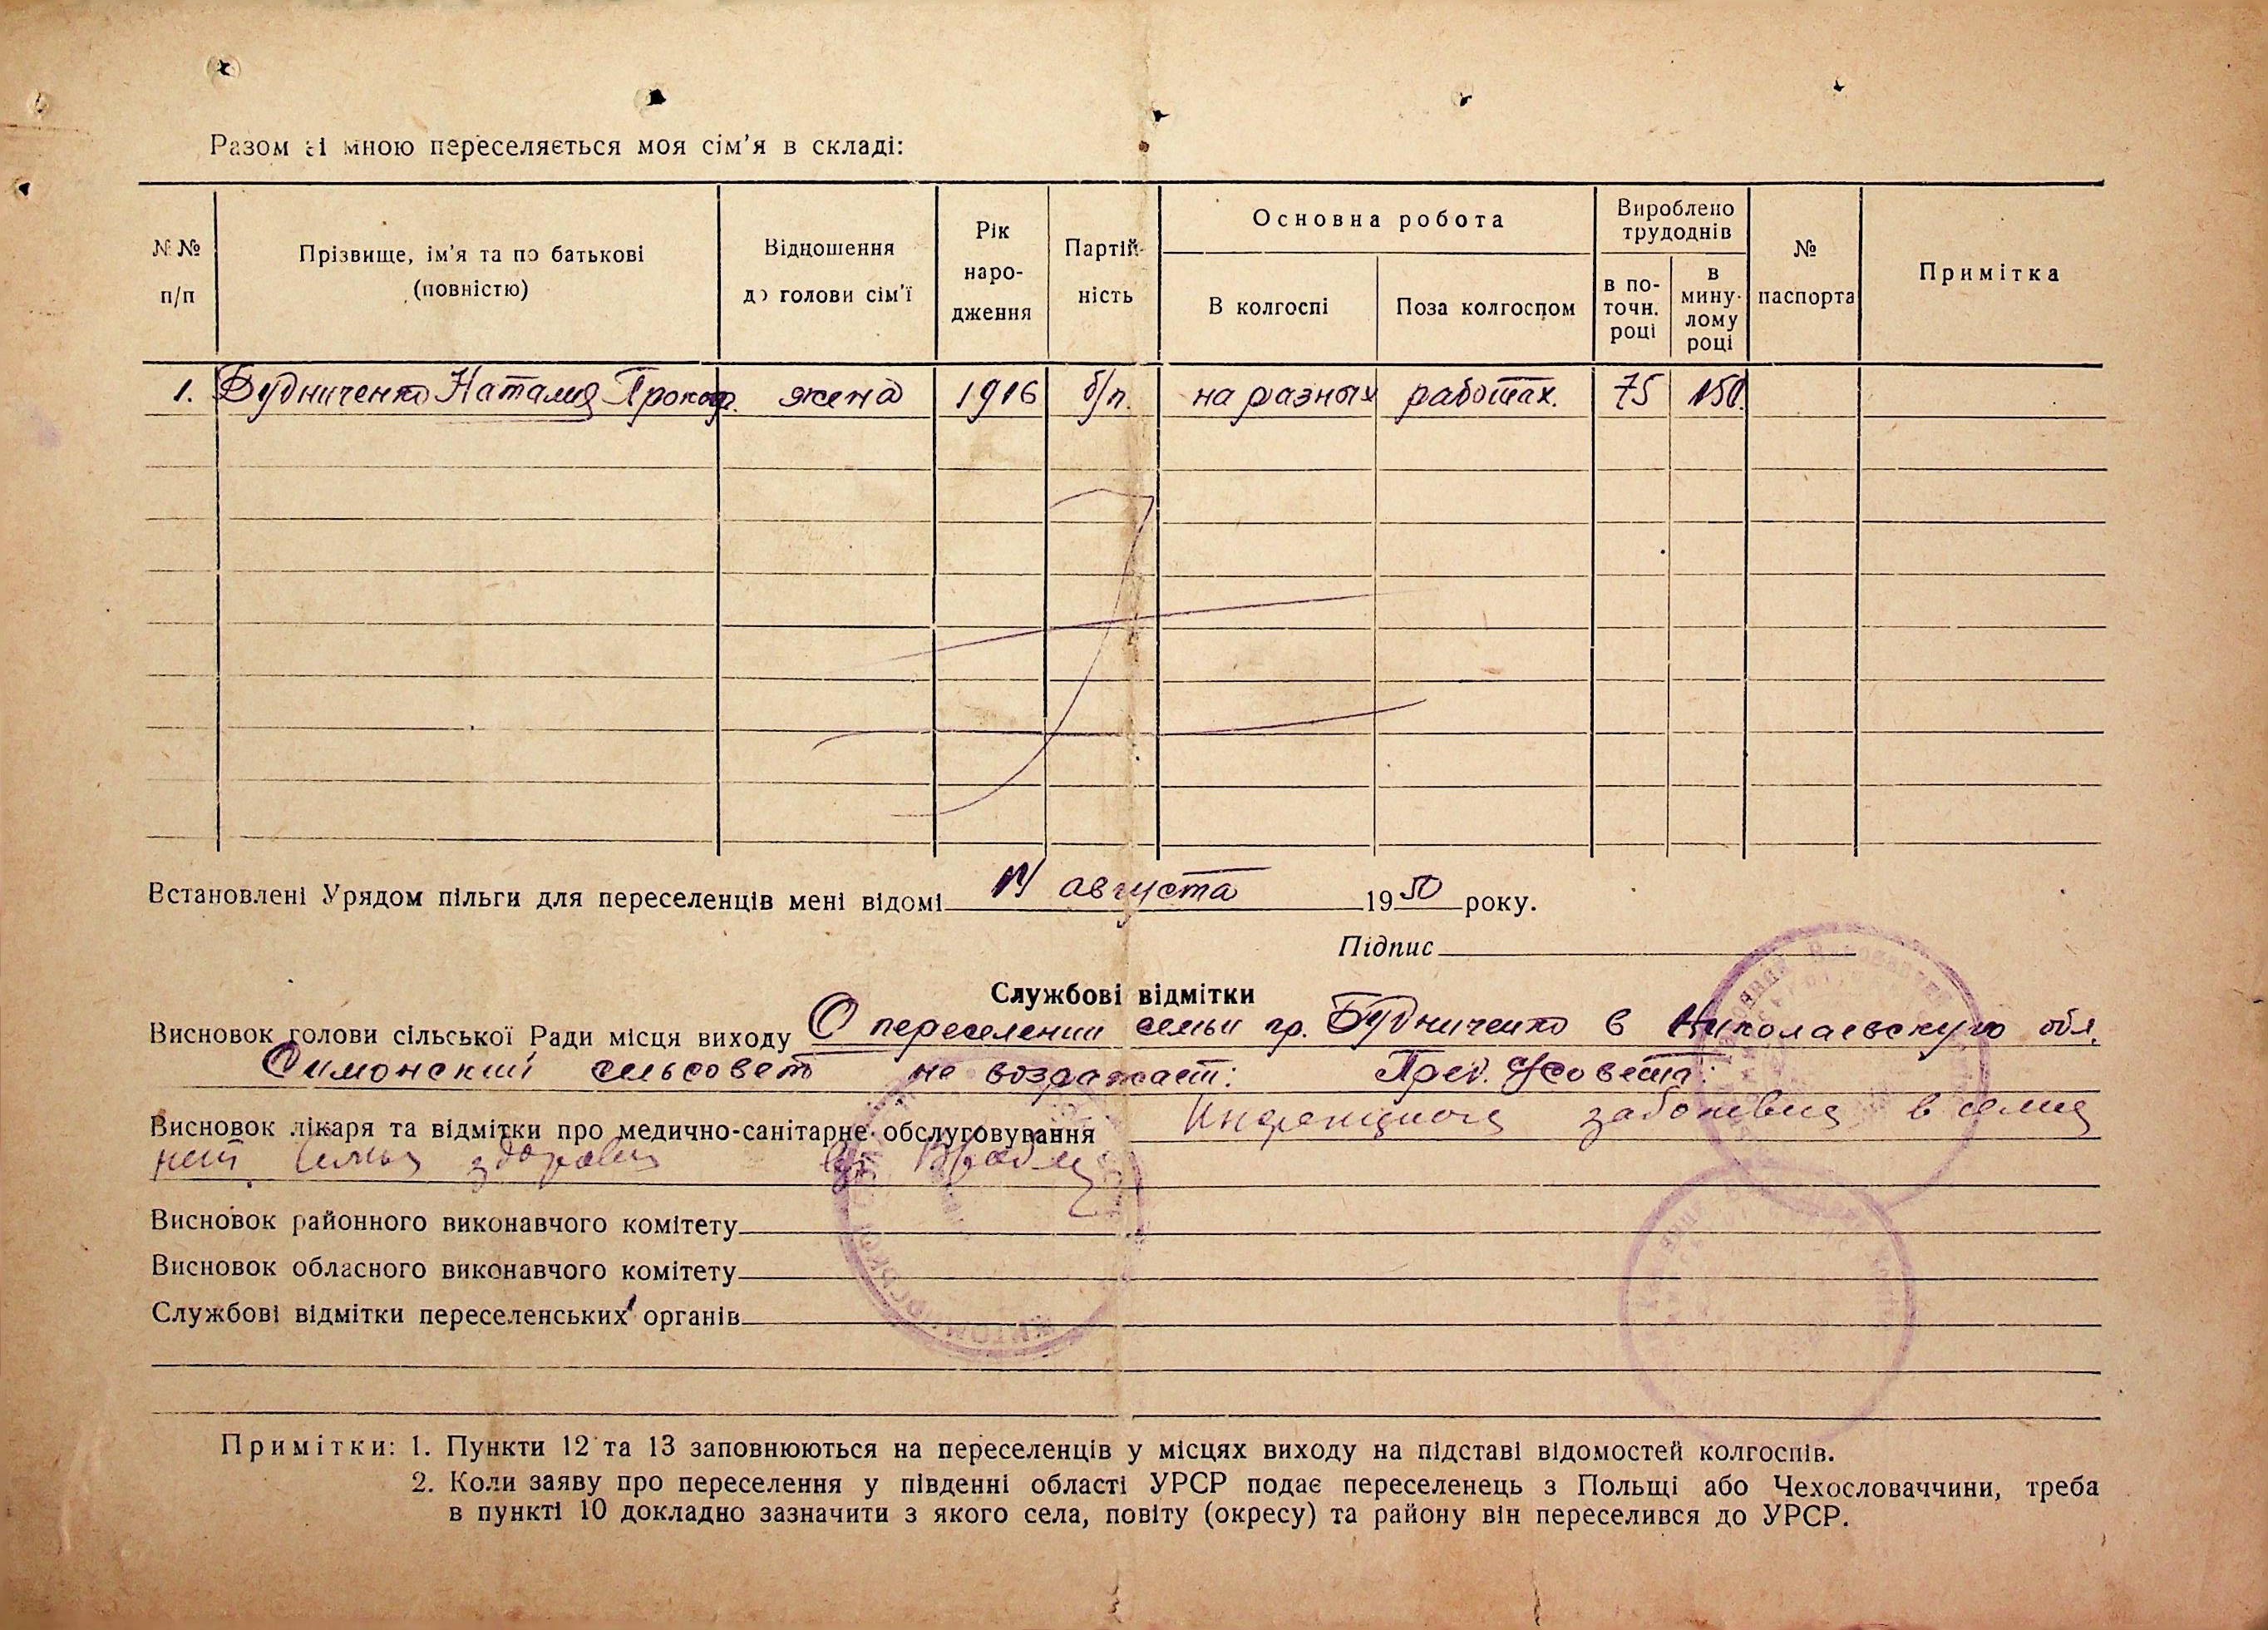 Разом зі мною переселяється моя сім'я в складі:
№ № п/п
Прізвище, ім'я та по батькові (повністю)
Відношення до голови сім'ї
Рік народження
Партійність
Основна робота
В колгоспі
Поза колгоспом
Вироблено трудоднів
в поточн. році
в минулому році
№ паспорта
Примітка
1. Будниченко Наталия Прокоф. жена 1916 б/п. на разных работах. 75 150.
Встановлені Урядом пільги для переселенців мені відомі августа 1950 року.
Підпис
Службові відмітки
Висновок голови сільської Ради місця виходу О переселении семьи гр. Будниченко в Николаевскую обл.
сельсовет не возражает: Пред. с/совета:
Висновок лікаря та відмітки про медично-санітарне обслуговування в семье
нет здорова
Висновок районного виконавчого комітету
Висновок обласного виконавчого комітету
Службові відмітки переселенських органів
Примітки: 1. Пункти 12 та 13 заповнюються на переселенців у місцях виходу на підставі відомостей колгоспів.
2. Коли заяву про переселення у південні області УРСР подає переселенець з Польщі або Чехословаччини, треба
в пункті 10 докладно зазначити з якого села, повіту (окресу) та району він переселився до УРСР.